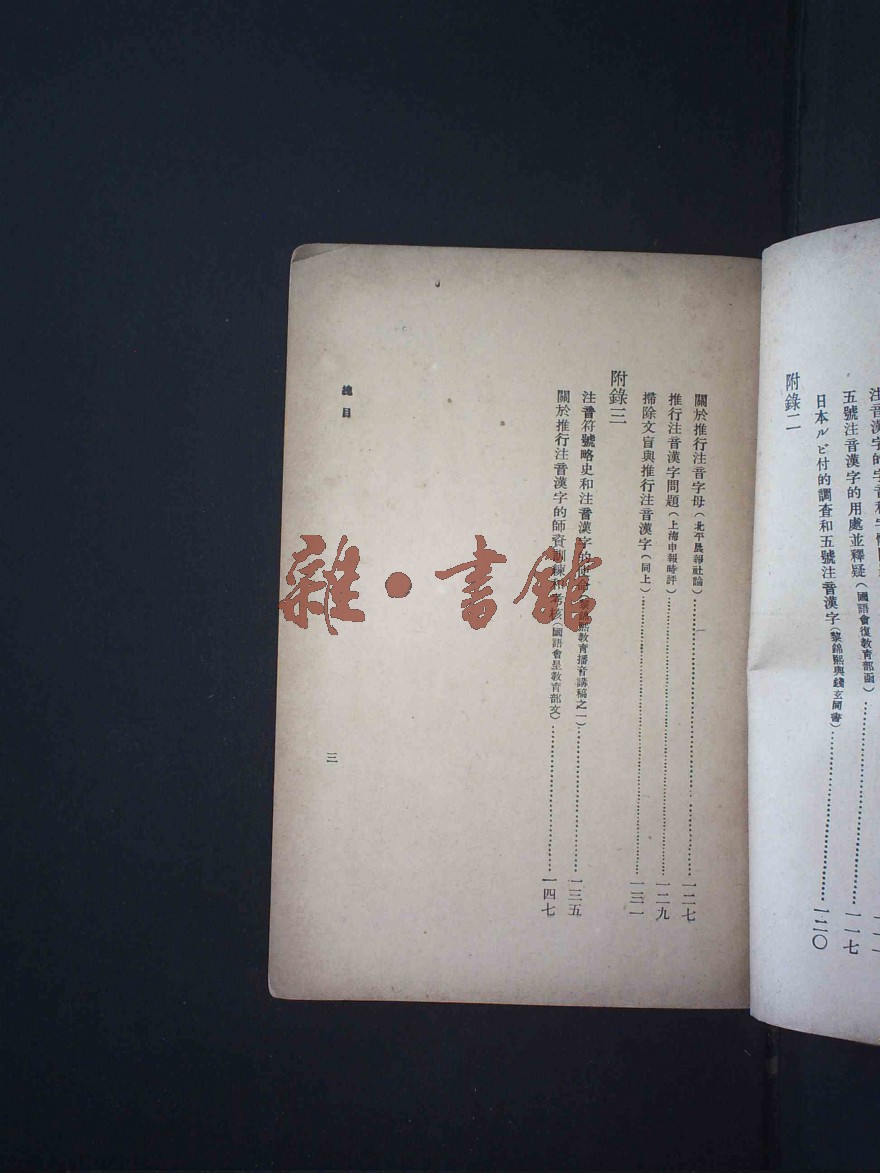 五號注音漢字的用處並釋疑（國語會復教育部函）…………一一七
附錄二
日本ルビ付的調查和五號注音漢字（黎錦熙與錢玄同書）…………一二〇
關於推行注音字母（北平晨報社論）…………一二七
推行注音漢字問題（上海申報時評）…………一二九
掃除文盲與推行注音漢字（同上）…………一三一
附錄三
注音符號略史和注音漢字的（黎錦熙教育播音講稿之一）…………一三五
關於推行注音漢字的師資訓練和考核（國語會呈教育部文）…………一四七
總目
三
雜·書館